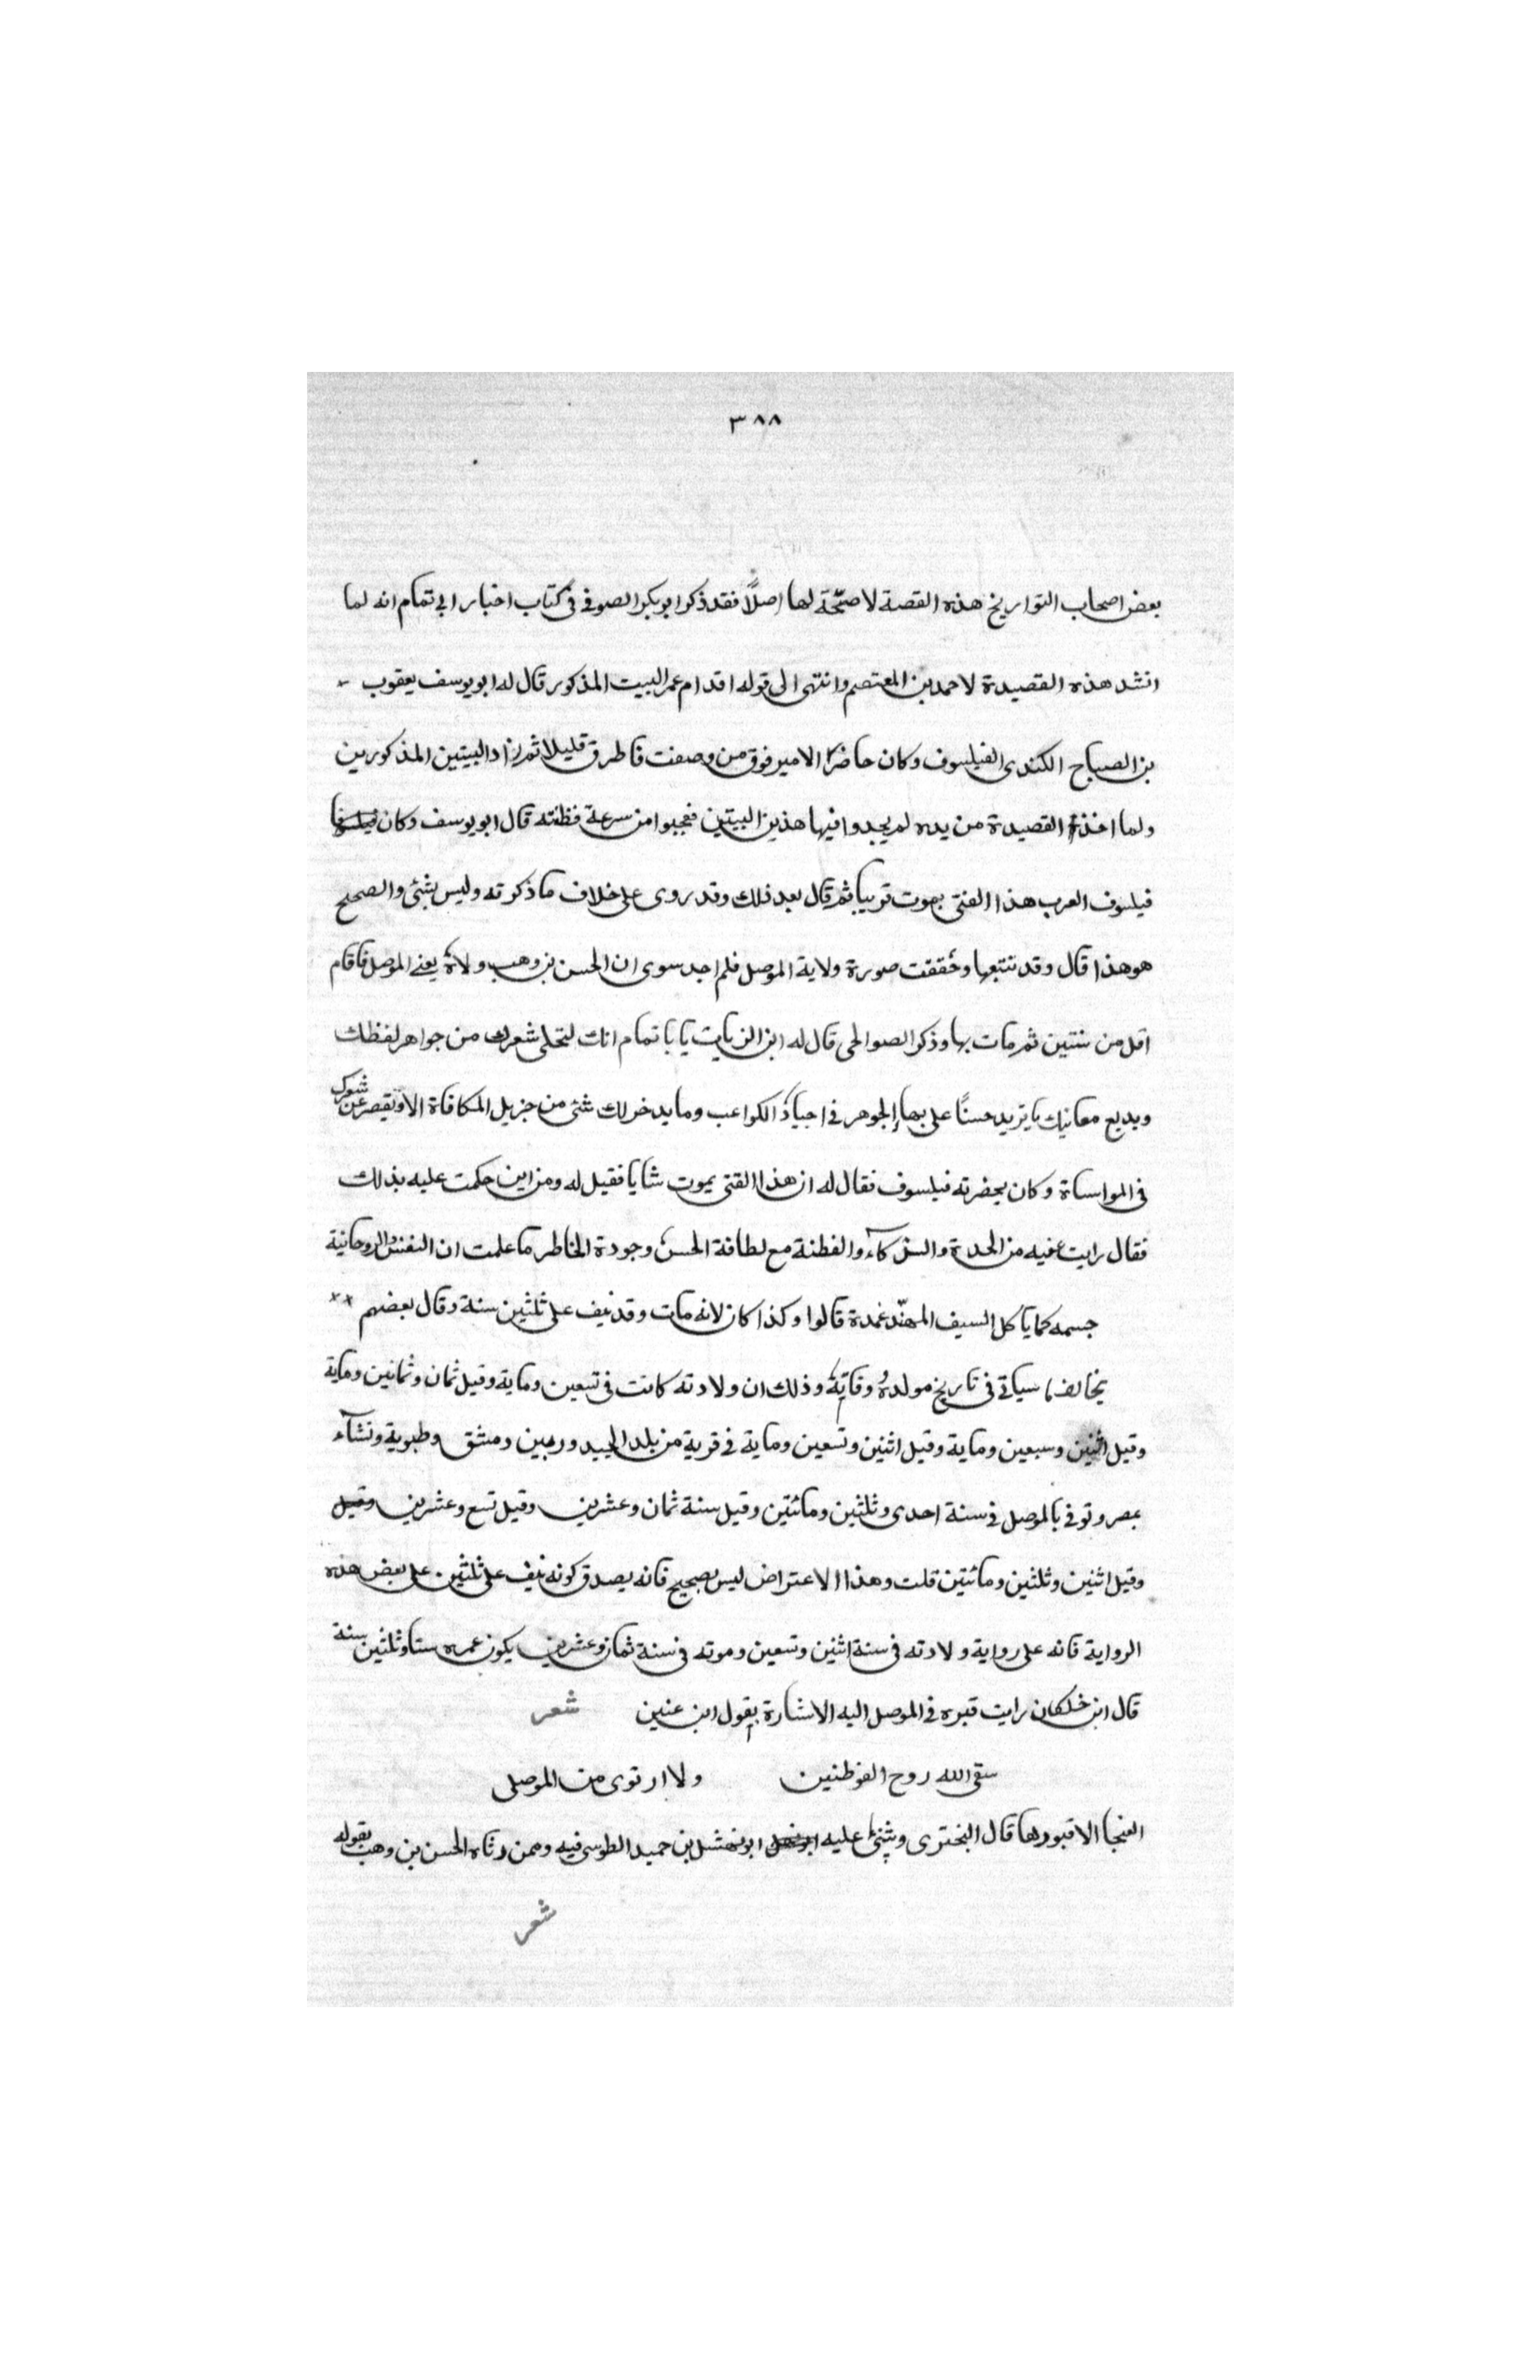 ٣٨٨
بعض اصحاب التواريخ هذه القصة لا صحّة لها اصلاً فقد ذكر ابو بكر الصوفى فى كتاب اخبار ابى تمام انه لما
انشد هذه القصيدة لاحمد بن المعتصم وانتهى الى قوله اقدام عمر البيت المذكور قال له ابو يوسف يعقوب
بن الصباح الكندى الفيلسوف وكان حاضرًا الامير فوق من وصفت فاطرق قليلا ثم زاد البيتين المذكورين
ولما اخذت القصيدة من يده لم يجدوا فيها هذين البيتين فعجبوا من سرعة فطنته قال ابو يوسف وكان
فيلسوف العرب هذا الفتى يموت قريبا ثم قال بعد ذلك وقد روى على خلاف ما ذكرته وليس بشئ والصحيح
هو هذا قال وقد تتبعها وحققت صورة ولاية الموصل فلم اجد سوى ان الحسن بن وهب ولاه يعنى الموصل فاقام
اقل من سنتين ثم مات بها وذكر الصوالحى قال له ابن الزيات يا با تمام انك لتحلى شعرك من جواهر لفظك
وبديع معانيك ما يزيد حسنًا على بهاء الجوهر فى اجياد الكواعب وما يدخر لك شئ من جزيل المكافاة الا ويقصر عن شعرك
فى المواساة وكان بحضرته فيلسوف فقال له ان هذا الفتى يموت شابا فقيل له ومن اين حكمت عليه بذلك
فقال رايت فيه من الحدة والذكاء والفطنة مع لطافة الحسن وجودة الخاطر ما علمت ان النفس الروحانية
جسمه كما ياكل السيف المهنّد غمدة قالوا وكذا كان لانه مات وقد نيف على ثلثين سنة وقال بعضهم
يخالف ما سياتى فى تاريخ مولده وفاته وذلك ان ولادته كانت فى تسعين وماية وقيل ثمان وثمانين وماية
وقيل اثنين وسبعين وماية وقيل اثنين وتسعين وماية فى قرية من بلد الجيدور بين دمشق وطبرية ونشاء
بمصر وتوفى بالموصل فى سنة احدى وثلثين ومائتين وقيل سنة ثمان وعشرين وقيل تسع وعشرين وقيل
وقيل اثنين وثلثين ومائتين قلت وهذا الاعتراض ليس بصحيح فانه يصدق كونه نيف على ثلثين على بعض هذه
الرواية فانه على رواية ولادته فى سنة اثنين وتسعين وموته فى سنة ثمان وعشرين يكون عمره ستا وثلثين سنة
قال ابن خلكان رايت قبره فى الموصل اليه الاشارة بقول ابن عنين شعر
سقى الله روح الغوطتين ولا ارتوى من الموصلى
الفيحا الا قبورها قال البخترى وبنى عليه ابو نهشل بن حميد الطوسى فيه وممن رثاه الحسن بن وهب بقوله
شعر